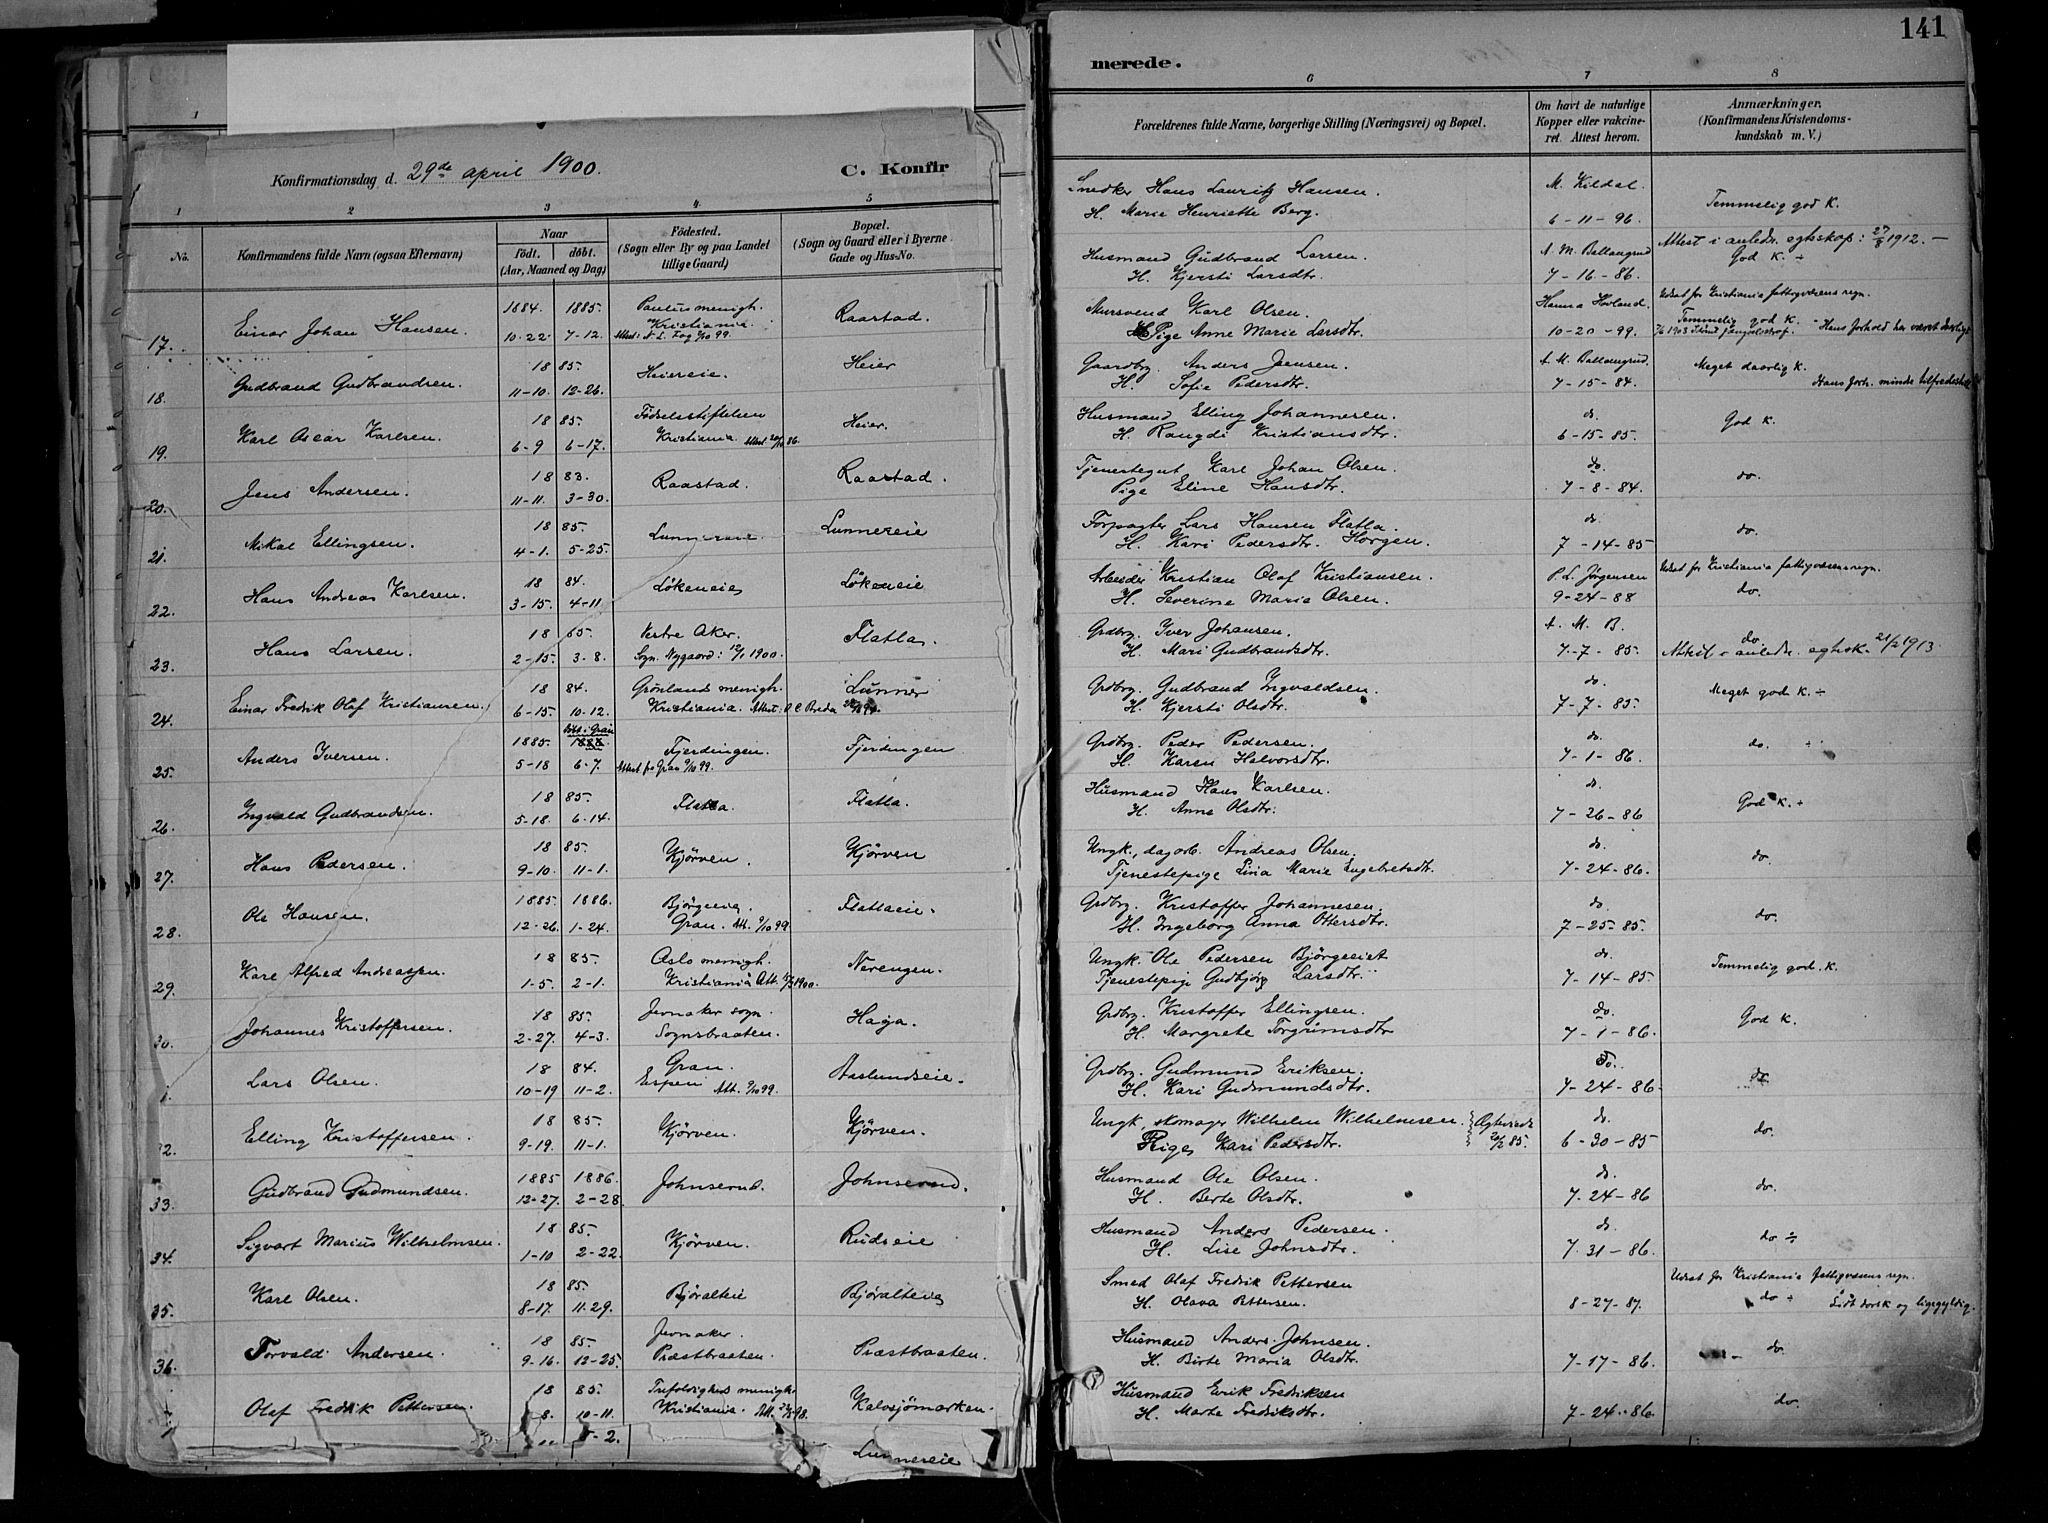 141
merede.
Konfirmationsdag d. 29de april 1900.
C. Konfir
1
2
3
4
5
No.
Konfirmandens fulde Navn (ogsaa Efternavn)
Naar
født. døbt.
(Aar, Maaned og Dag)
Fødested.
(Sogn eller By og paa Landet
tillige Gaard)
Bopæl.
(Sogn og Gaard eller i Byerne
Gade og Hus-No.
1884. 1885. Paulus menigh.
17. Einar Johan Hansen. 10-22. 7-12. Kristiania. Raastad.
Attest: N. L. Fog 9/10 99.
18 85.
18. Gudbrand Gudbrandsen. 11-10. 12-26. Heiereie. Heier
18 85. Fødselsstiftelsen
19. Karl Oscar Karlsen. 6-9 6-17. Kristiania. Heier.
18 83.
20. Jens Andersen. 11-11. 3-30. Raastad. Raastad.
18 85.
21. Mikal Ellingsen. 4-1. 5-25. Lunnereie. Lunnereie
18 84.
22. Hans Andreas Karlsen. 3-15. 4-11. Løkeneie Løkeneie
18 85. Vestre Aker.
23. Hans Larsen. 2-15. 3-8. Sogn. Nygaard: 12/1 1900. Flatla.
18 84. Grønlands menigh.
24. Einar Fredrik Olaf Kristiansen. 6-15. 10-12. Kristiania. Lunner
døbt i Gran
1885. Fjerdingen. Fjerdingen
25. Anders Iversen. 5-18 6-7. Attest fra Gran 9/10 99.
18 85.
26. Ingvald Gudbrandsen. 5-18. 6-14. Flatla. Flatla.
18 85.
27. Hans Pedersen. 9-10. 11-1. Kjørven. Kjørven
1885. 1886. Bjørgeeie
28. Ole Hansen. 12-26. 1-24. Gran. Att. 9/10 99 Flatlaeie.
18 85. Oslo menigh.
29. Karl Alfred Andreassen. 1-5. 2-1. Kristiania Nerengen.
18 85. Jevnaker sogn.
30. Johannes Kristoffersen. 2-27. 4-3. Sognsbraaten. Haga.
18 84. Gran.
1. Lars Olsen. 10-19 11-2. Espen Att. 9/10 99. Aaslundseie.
18 85.
32. Elling Kristoffersen. 9-19. 11-1. Kjørven. Kjørven.
1885 1886.
33. Gudbrand Gudmundsen. 12-27. 2-28. Johnserud. Johnserud.
18 85.
34. Sigvart Marius Wilhelmsen. 1-10 2-22. Kjørven. Rudseie
18 85.
35. Karl Olsen. 8-17. 11-29. Bjøralteie Bjøralteie
18 85. Jevnaker.
36. Torvald Andersen. 9-16. 12-25. Præstbraaten. Præstbraaten.
18 85. Trefoldigheds menigh.
Olaf Fredrik Pettersen. 8. 10-11. Kristiania. Kalvsjømarken.
5-2. Lunnereie
6
7
8
Forældrenes fulde Navne, borgerlige Stilling (Næringsvei) og Bopæl.
Om havt de naturlige
Kopper eller vakcine-
ret. Attest herom.
Anmærkninger.
(Konfirmandens Kristendoms-
kundskab m. V.)
Snedker Hans Lauritz Hansen. M. Kildal.
H. Marie Henriette Berg. 6-11-96. Temmelig god K.
Husmand Gudbrand Larsen. A. M. Ballangrud Attest i anledn. egteskap: 27/8 1912.
H. Kjersti Larsdtr. 7-16-86. God K. ÷
Mursvend Karl Olsen. Hanna Hovland. Udsat for Kristiania fattigvæsens regn.
Pige Anne Marie Larsdtr. 10-20-99. Temmelig god K. Hans Forhold har været daarligt
Gaardbr. Anders Jensen. A. M. Ballangrud Meget daarlig K.
H. Sofie Pedersdtr. 7-15-84. Hans Forh. mindre tilfredsstill.
Husmand Elling Johannesen. do.
H. Rangdi Kristiansdtr. 6-15-85. God K.
Tjenestegut Karl Johan Olsen. do.
Pige Eline Hansdtr. 7-8-84. do.
Forpagter Lars Hansen Flatla. do.
H. Kari Pedersdtr. Horgen. 7-14-85 do.
Arbeider Kristian Olaf Kristiansen. P. L. Jørgensen Udsat for Kristiania fattigvæsens regn.
H. Severine Marie Olsen. 9-24-88 do.
Grdbr. Iver Johansen. A. M. B. do.
H. Mari Gudbrandsdtr. 7-7-85. Attest i anledn. egtsk. 21/2 1913.
Grdbr. Gudbrand Ingvaldsen. do.
H. Kjersti Olsdtr. 7-7-85. Meget god K. ÷
Grdbr. Peder Pedersen. do.
H. Karen Halvorsdtr. 7-1-86. do. ÷
Husmand Hans Karlsen. do.
H. Anne Olsdtr. 7-26-86 God K. ÷
Ungk., dagarb. Andreas Olsen. do.
Tjenestepige Lina Marie Engebretsdtr. 7-24-86. do.
Grdbr. Kristoffer Johannesen. do.
H. Ingeborg Anna Ottersdtr. 7-25-85. do.
Ungk. Ole Pedersen Bjørgeeiet do.
Tjenestepige Gudbjør Larsdtr. 7-14-85. Temmelig god K.
Grdbr. Kristoffer Ellingsen. do.
H. Margrete Torgrimsdtr 7-1-86. God K.
Grdbr. Gudmund Eriksen. Do.
H. Kari Gudmundsdtr. 7-24-86. do
Ungk., skomager Wilhelm Wilhelmsen. do.
Pige Kari Pedersdtr. 6-30-85 do.
Husmand Ole Olsen. do.
H. Berte Olsdtr. 7-24-86 do.
Husmand Anders Pedersen. do.
H. Lise Johnsdtr. 7-31-86. do ÷
Smed Olaf Fredrik Pettersen Udsat for Kristiania fattigvæsens regn.
H. Olava Pettersen. 8-27-87. do ÷ Lidt dorsk og ligegyldig.
Husmand Anders Johnsen.
H. Birte Maria Olsdtr. 7-17-86. do.
Husmand Erik Fredriksen
H. Marte Fredriksdtr. 7-24-86. do.